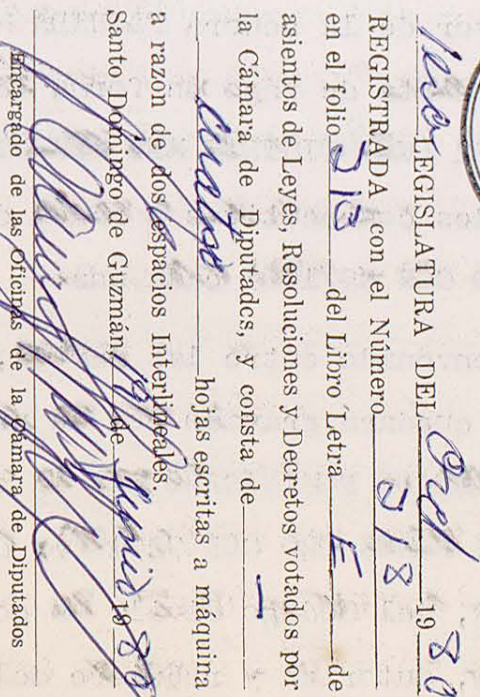 1era LEGISLATURA DEL Ord 1980
REGISTRADA con el Número 318
en el folio 318 del Libro Letra E de
asientos de Leyes, Resoluciones y Decretos votados por
la Cámara de Diputados, y consta de —
cuatro hojas escritas a máquina
a razón de dos espacios Interlineales.
Santo Domingo de Guzmán, de Junio 1980
Encargado de las Oficinas de la Cámara de Diputados